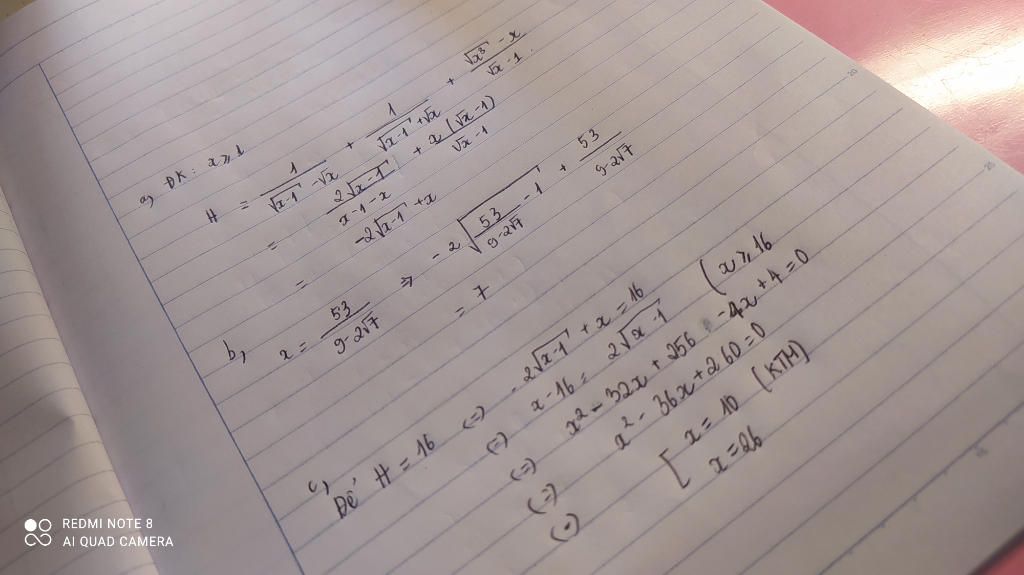 a, ĐK: x ≥ 1
H = 1/(√(x-1) - √x) + 1/(√(x-1) + √x) + (√x³ - x)/(√x - 1)
= 2√(x-1)/(x-1-x) + x(√x-1)/(√x-1)
= -2√(x-1) + x
b, x = 53/(9-2√7) => -2√(53/(9-2√7) - 1) + 53/(9-2√7)
= 7
c,
Để H = 16 (=) -2√(x-1) + x = 16
(=) x-16 = 2√(x-1) (x ≥ 16
(=) x² - 32x + 256 - 4x + 4 = 0
(=) x² - 36x + 260 = 0
(=) [ x = 10 (KTM)
x = 26
REDMI NOTE 8
AI QUAD CAMERA
20
25